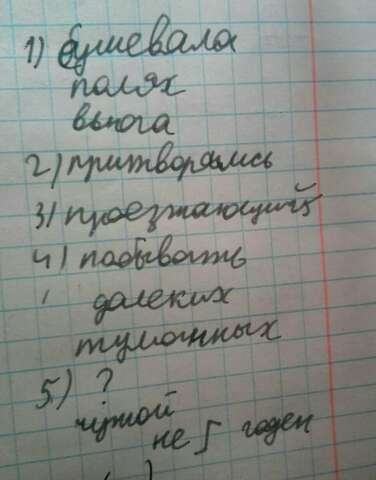 1) бушевала
полях
вьюга
2) притворялись
3) проезжающий
4) побывать
далеких
туманных
5) ?
чужой
не годен
( )